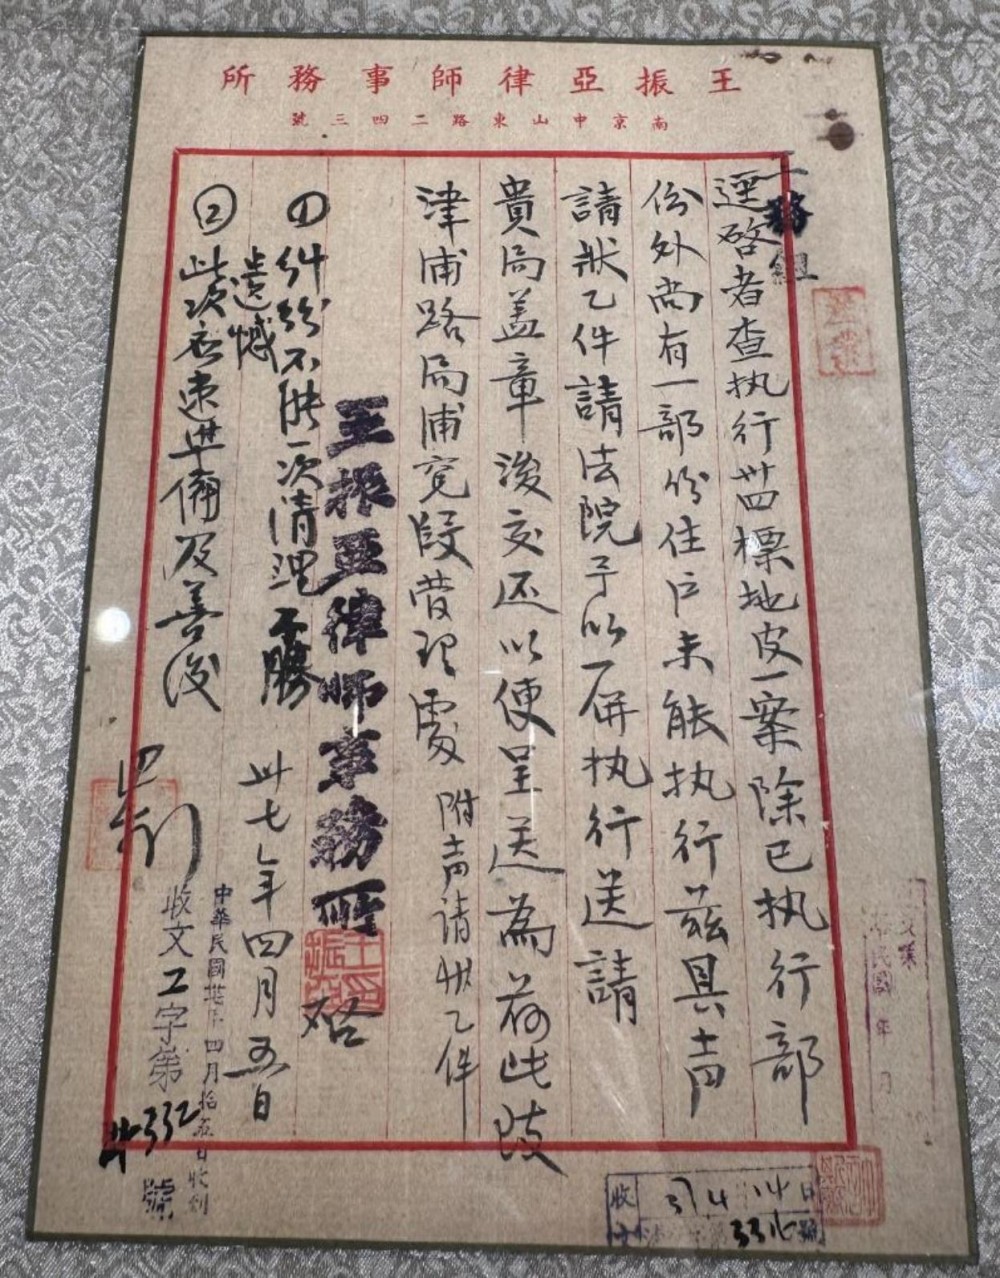 王振亞律師事務所
南京中山東路二四三號
工務組
逕啓者查执行卅四標地皮一案除已执行部
份外尚有一部份住户未能执行兹具声
請狀乙件請法院予以一併执行送請
貴局盖章後交还以便呈送為荷此致
津浦路局浦兖段管理處 附声請狀乙件
王振亚律师事務所 启
卅七年四月五日
① 糾紛不能一次清理不勝
遺憾
② 此次应速進備及善後
中華民國卅七年四月拾五日收到
收文工字第
332
號
民國 年 月
收 37 4 14 日